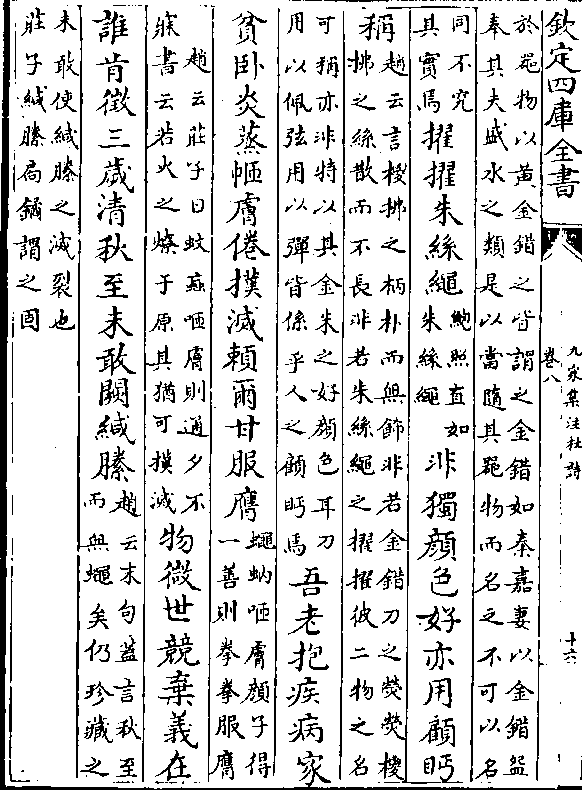 欽定四庫全書
九家集注杜詩
卷八
十六
於器物以黄金錯之皆謂之金錯如秦嘉妻以金錯盌
奉其夫盛水之類是以當隨其器物而名之不可以名
同不究
其實焉
擢擢朱絲繩
鮑照直如
朱絲繩
非獨顔色好亦用顧盻
稱
趙云言椶拂之柄朴而無飾非若金錯刀之熒熒椶
拂之絲散而不長非若朱絲繩之擢擢彼二物之名
可稱亦非特以其金朱之好顔色耳刀
用以佩弦用以彈皆係乎人之顧盻焉
吾老抱疾病家
貧卧炎蒸咂膚倦撲滅賴爾甘服膺
蠅蚋咂膚顔子得
一善則拳拳服膺
趙云莊子曰蚊䖟咂膚則通夕不
寐書云若火之燎于原其猶可撲滅
物微世競棄義在
誰肯徵三歲清秋至未敢闕緘縢
趙云末句蓋言秋至
而無蠅矣仍珍藏之
未敢使緘縢之滅裂也
莊子緘縢扃鐍謂之固